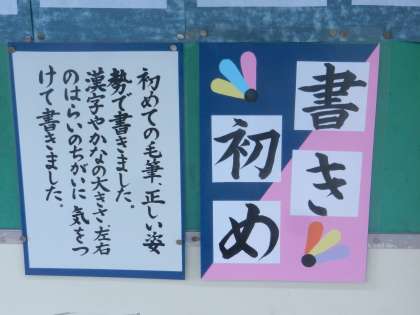 書き
初め
初めての毛筆、正しい姿
勢で書きました。
漢字やかなの大きさ、左右
のはらいのちがいに気をつ
けて書きました。